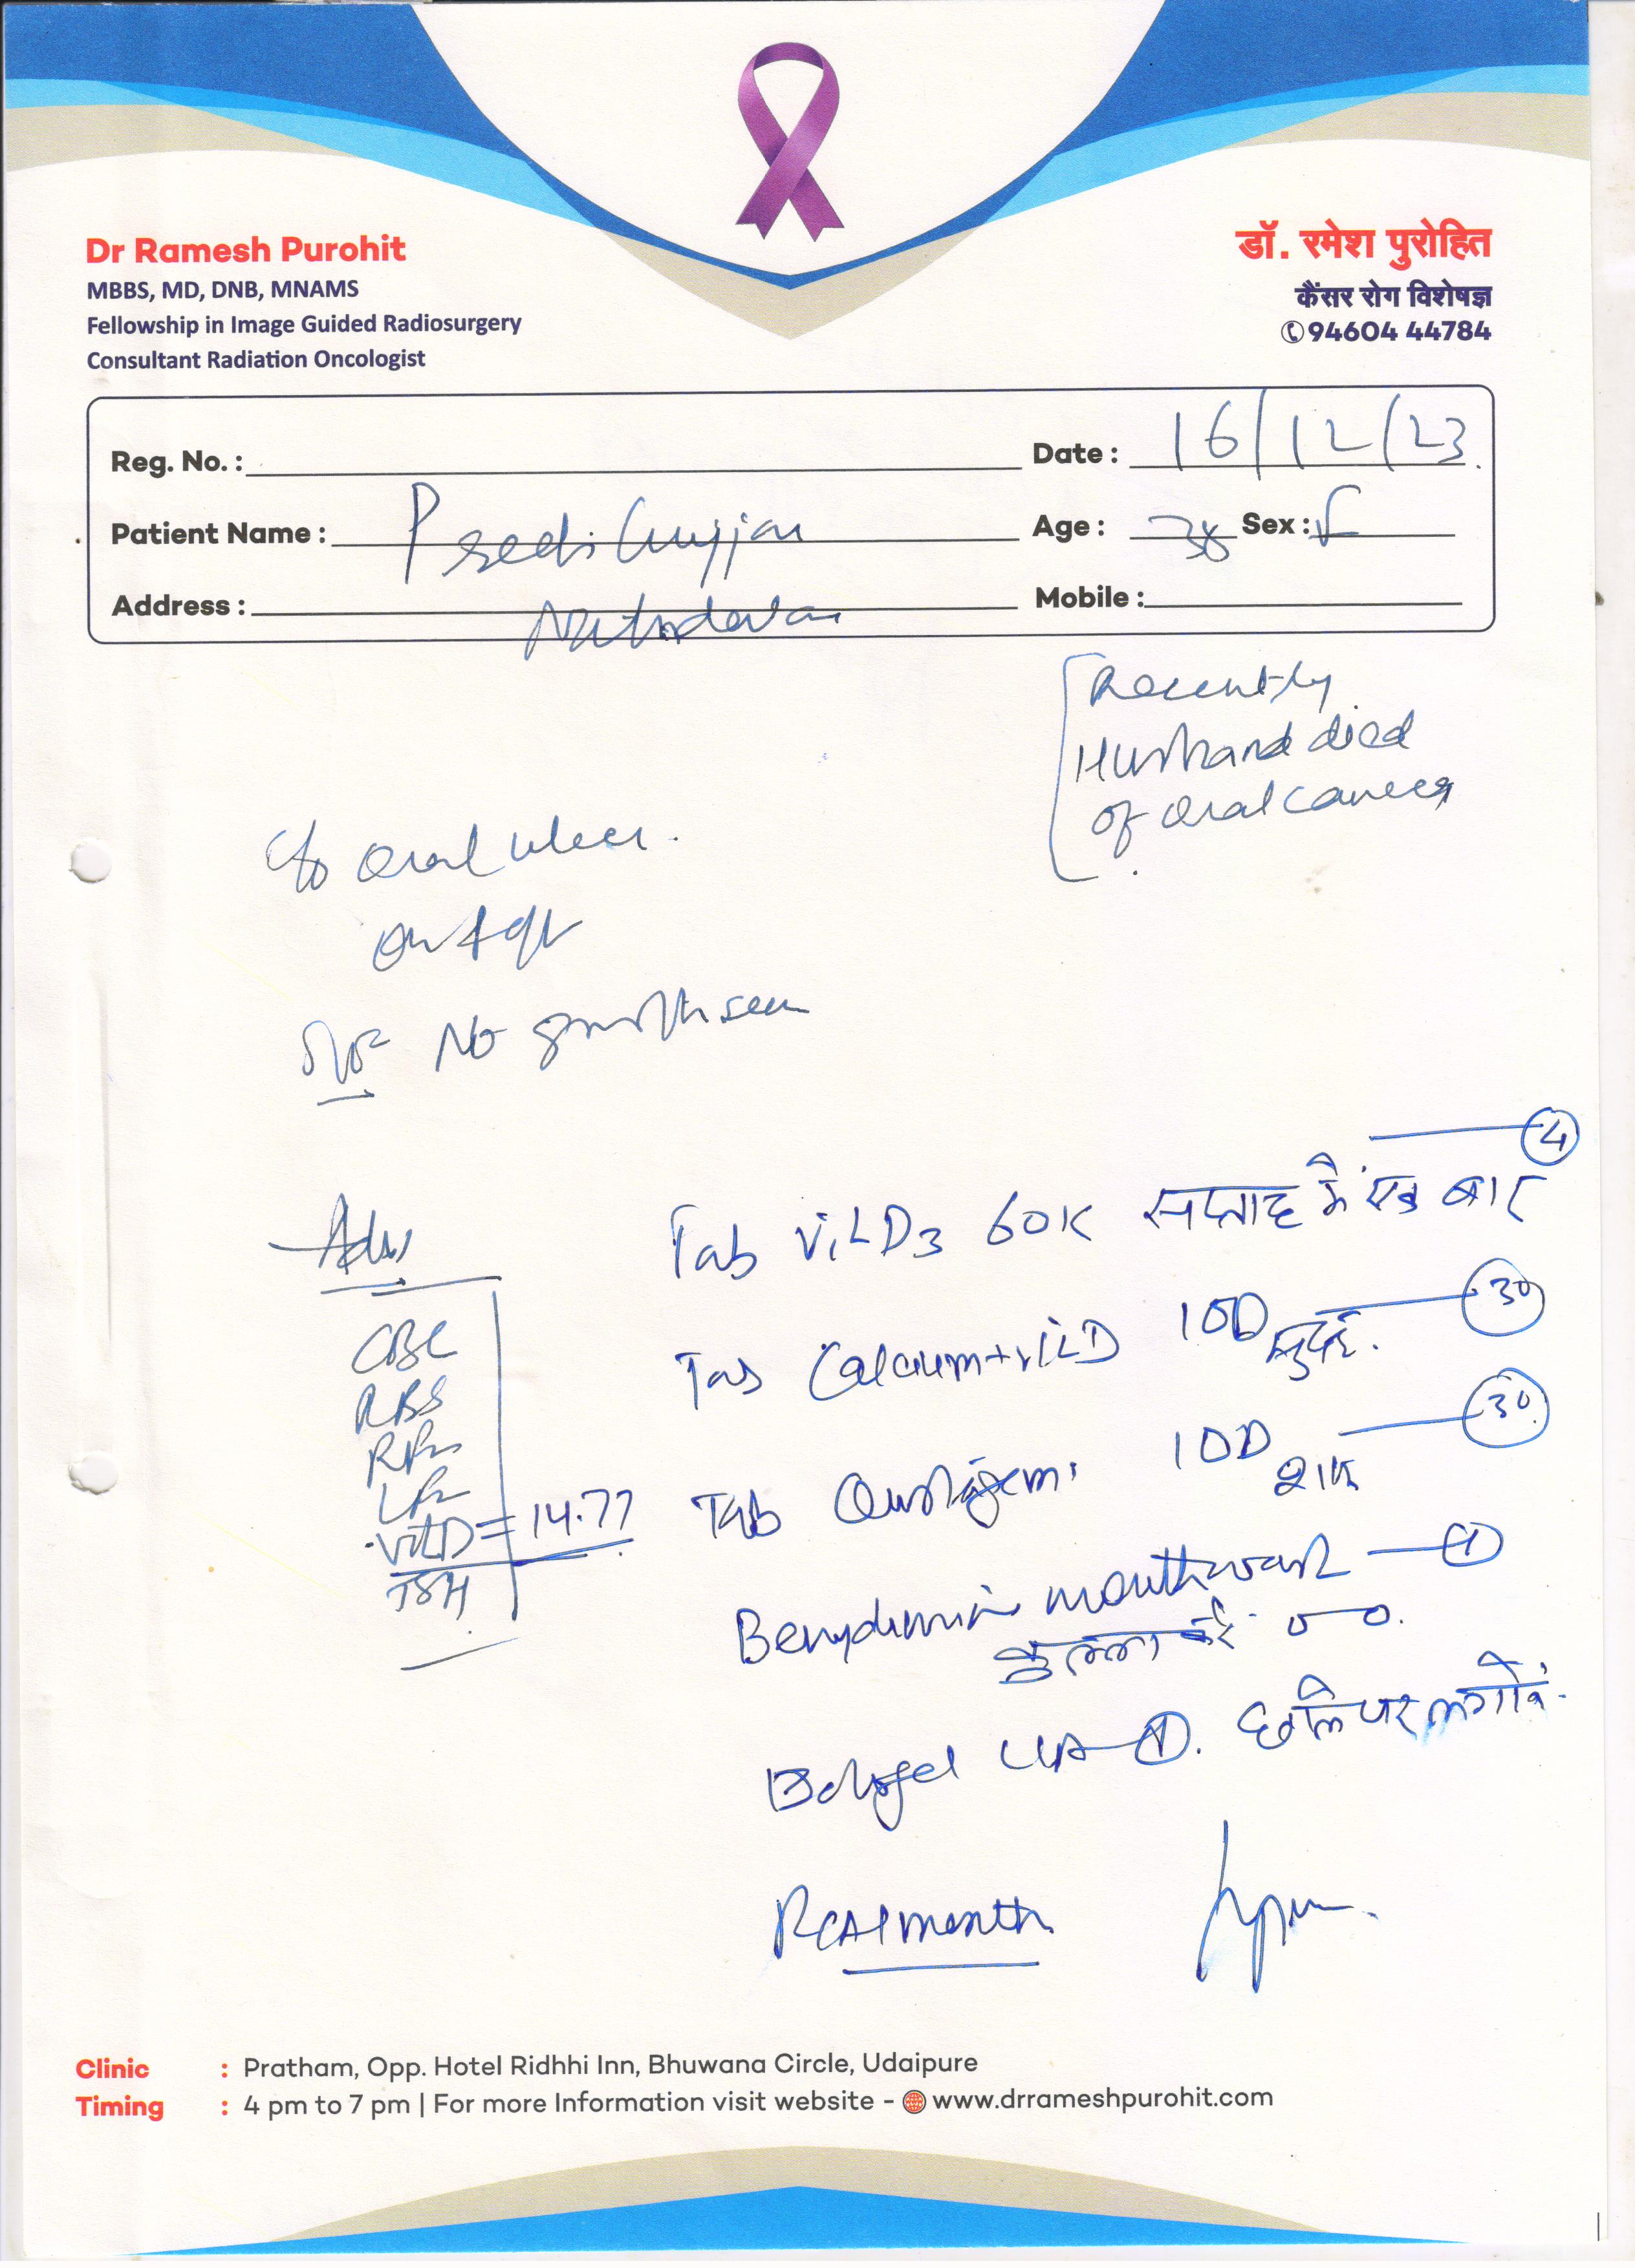 Dr Ramesh Purohit
MBBS, MD, DNB, MNAMS
Fellowship in Image Guided Radiosurgery
Consultant Radiation Oncologist
डॉ. रमेश पुरोहित
कैंसर रोग विशेषज्ञ
94604 44784
Reg. No. :
Date : 16/12/23
Patient Name :
Age : 38 Sex : F
Address :
Mobile :
Recently
Husband died
of oral cancer
c/o oral ulcer.
No growth seen
Adv
CBC
RBS
RFT
LFT
Vit D = 14.77
TSH
4
Tab Vit D3 60K सप्ताह में एक बार
Tab Calcium + Vit D 1OD सुबह 30
Tab 1OD शाम 30
Benzydamine mouthwash 1
कुल्ला करें
LA 1. छाले पर लगावें.
month
Clinic : Pratham, Opp. Hotel Ridhhi Inn, Bhuwana Circle, Udaipure
Timing : 4 pm to 7 pm | For more Information visit website - www.drrameshpurohit.com